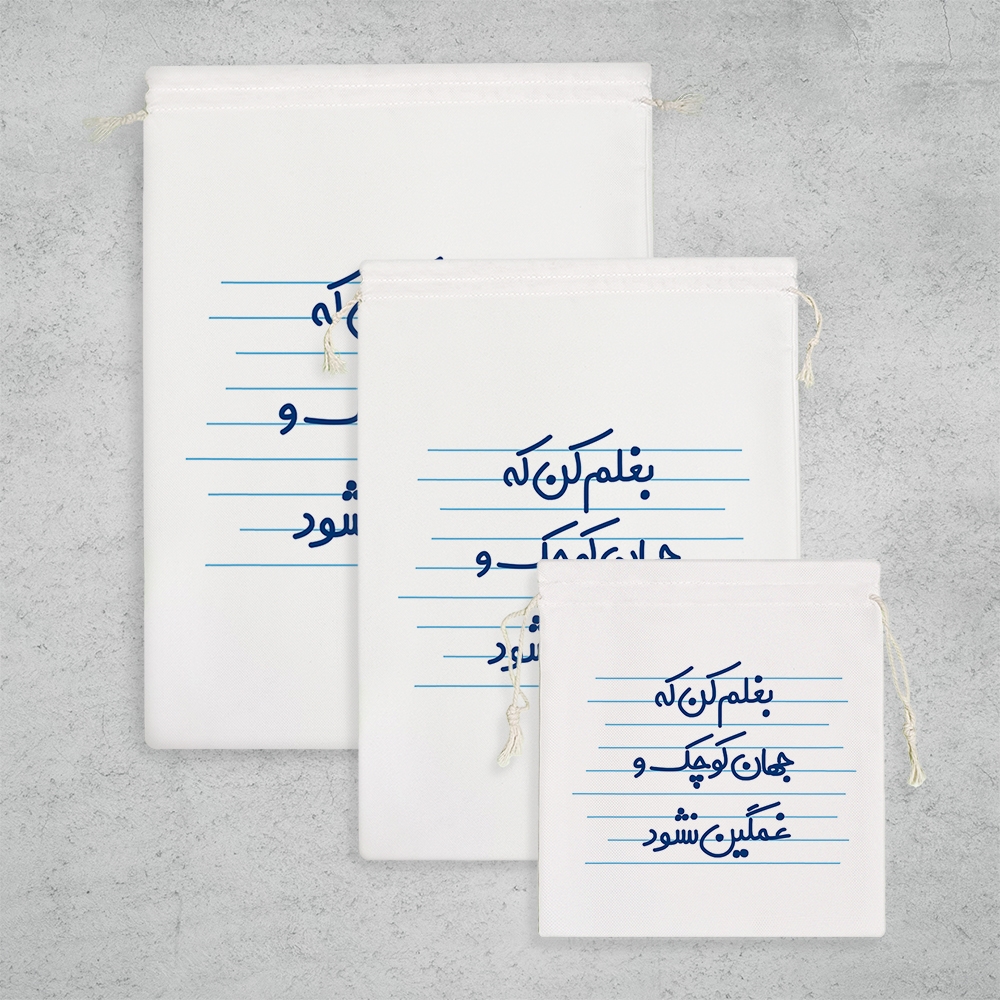 که
و
شود
بغلم کن که
جهان کوچک و
شود
بغلم کن که
جهان کوچک و
غمگین نشود